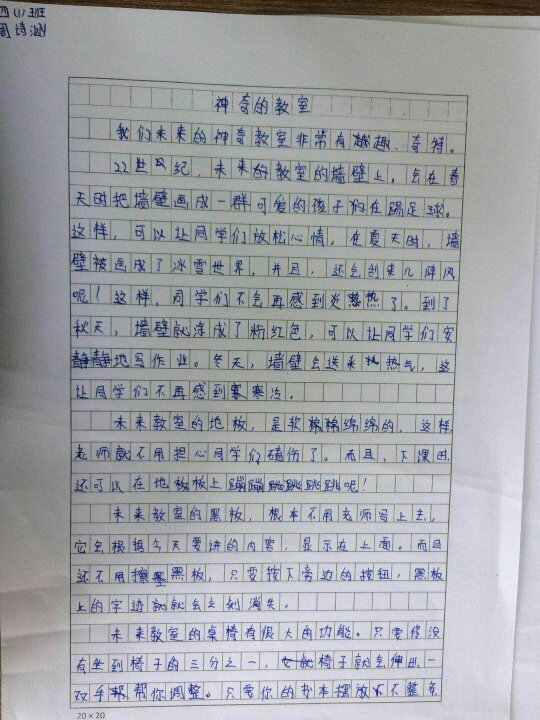 四(1)班
周诗涵
神奇的教室
我们未来的神奇教室非常有趣、奇特。
22世纪,未来的教室的墙壁上,会在春
天时把墙壁画成一群可爱的孩子们在踢足球。
这样,可以让同学们放松心情。在夏天时,墙
壁被画成了冰雪世界,并且,还会刮来几阵风
呢!这样,同学们不会再感到炎热了。到了
秋天,墙壁就涂成了粉红色,可以让同学们安
静地写作业。冬天,墙壁会送来热气,这
让同学们不再感到寒冷。
未来教室的地板,是软绵绵的,这样
老师就不用担心同学们磕伤了。而且,下课时
还可以在地板上蹦蹦跳跳呢!
未来教室的黑板,根本不用老师写上去,
它会根据今天要讲的内容,显示在上面。而且
还不用擦黑板,只要按下旁边的按钮,黑板
上的字迹就会立刻消失。
未来教室的桌椅有很大的功能。只要你没
有坐到椅子的三分之一,椅子就会伸出一
双手帮你调整。只要你的书本摆放不整齐
20×20